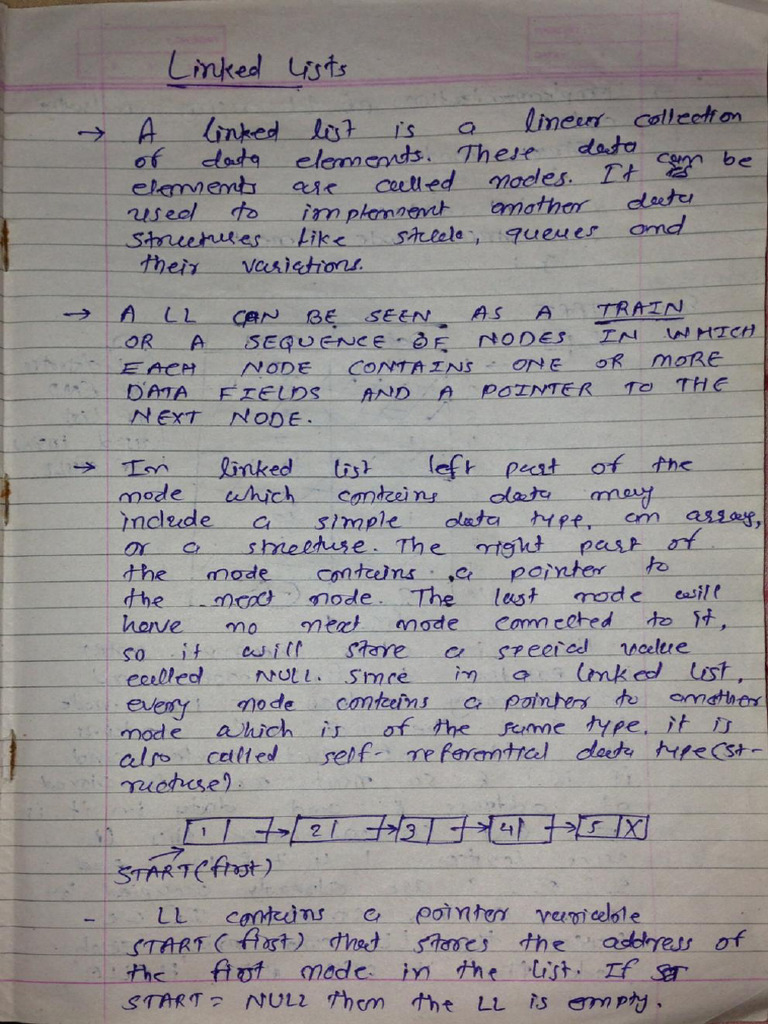 Linked Lists
→ A linked list is a linear collection
of data elements. These data
elements are called nodes. It can be
used to implement another data
structures like stack, queues and
their variations.
→ A LL CAN BE SEEN AS A TRAIN
OR A SEQUENCE OF NODES IN WHICH
EACH NODE CONTAINS ONE OR MORE
DATA FIELDS AND A POINTER TO THE
NEXT NODE.
→ In linked list left part of the
node which contains data may
include a simple data type, an array,
or a structure. The right part of
the node contains a pointer to
the next node. The last node will
have no next node connected to it,
so it will store a special value
called NULL. Since in a linked list,
every node contains a pointer to another
node which is of the same type, it is
also called self-referential data type(st-
ructure).
1 → 2 → 3 → 4 → 5 X
START(first)
- LL contains a pointer variable
START(first) that stores the address of
the first node in the list. If
START = NULL then the LL is empty.